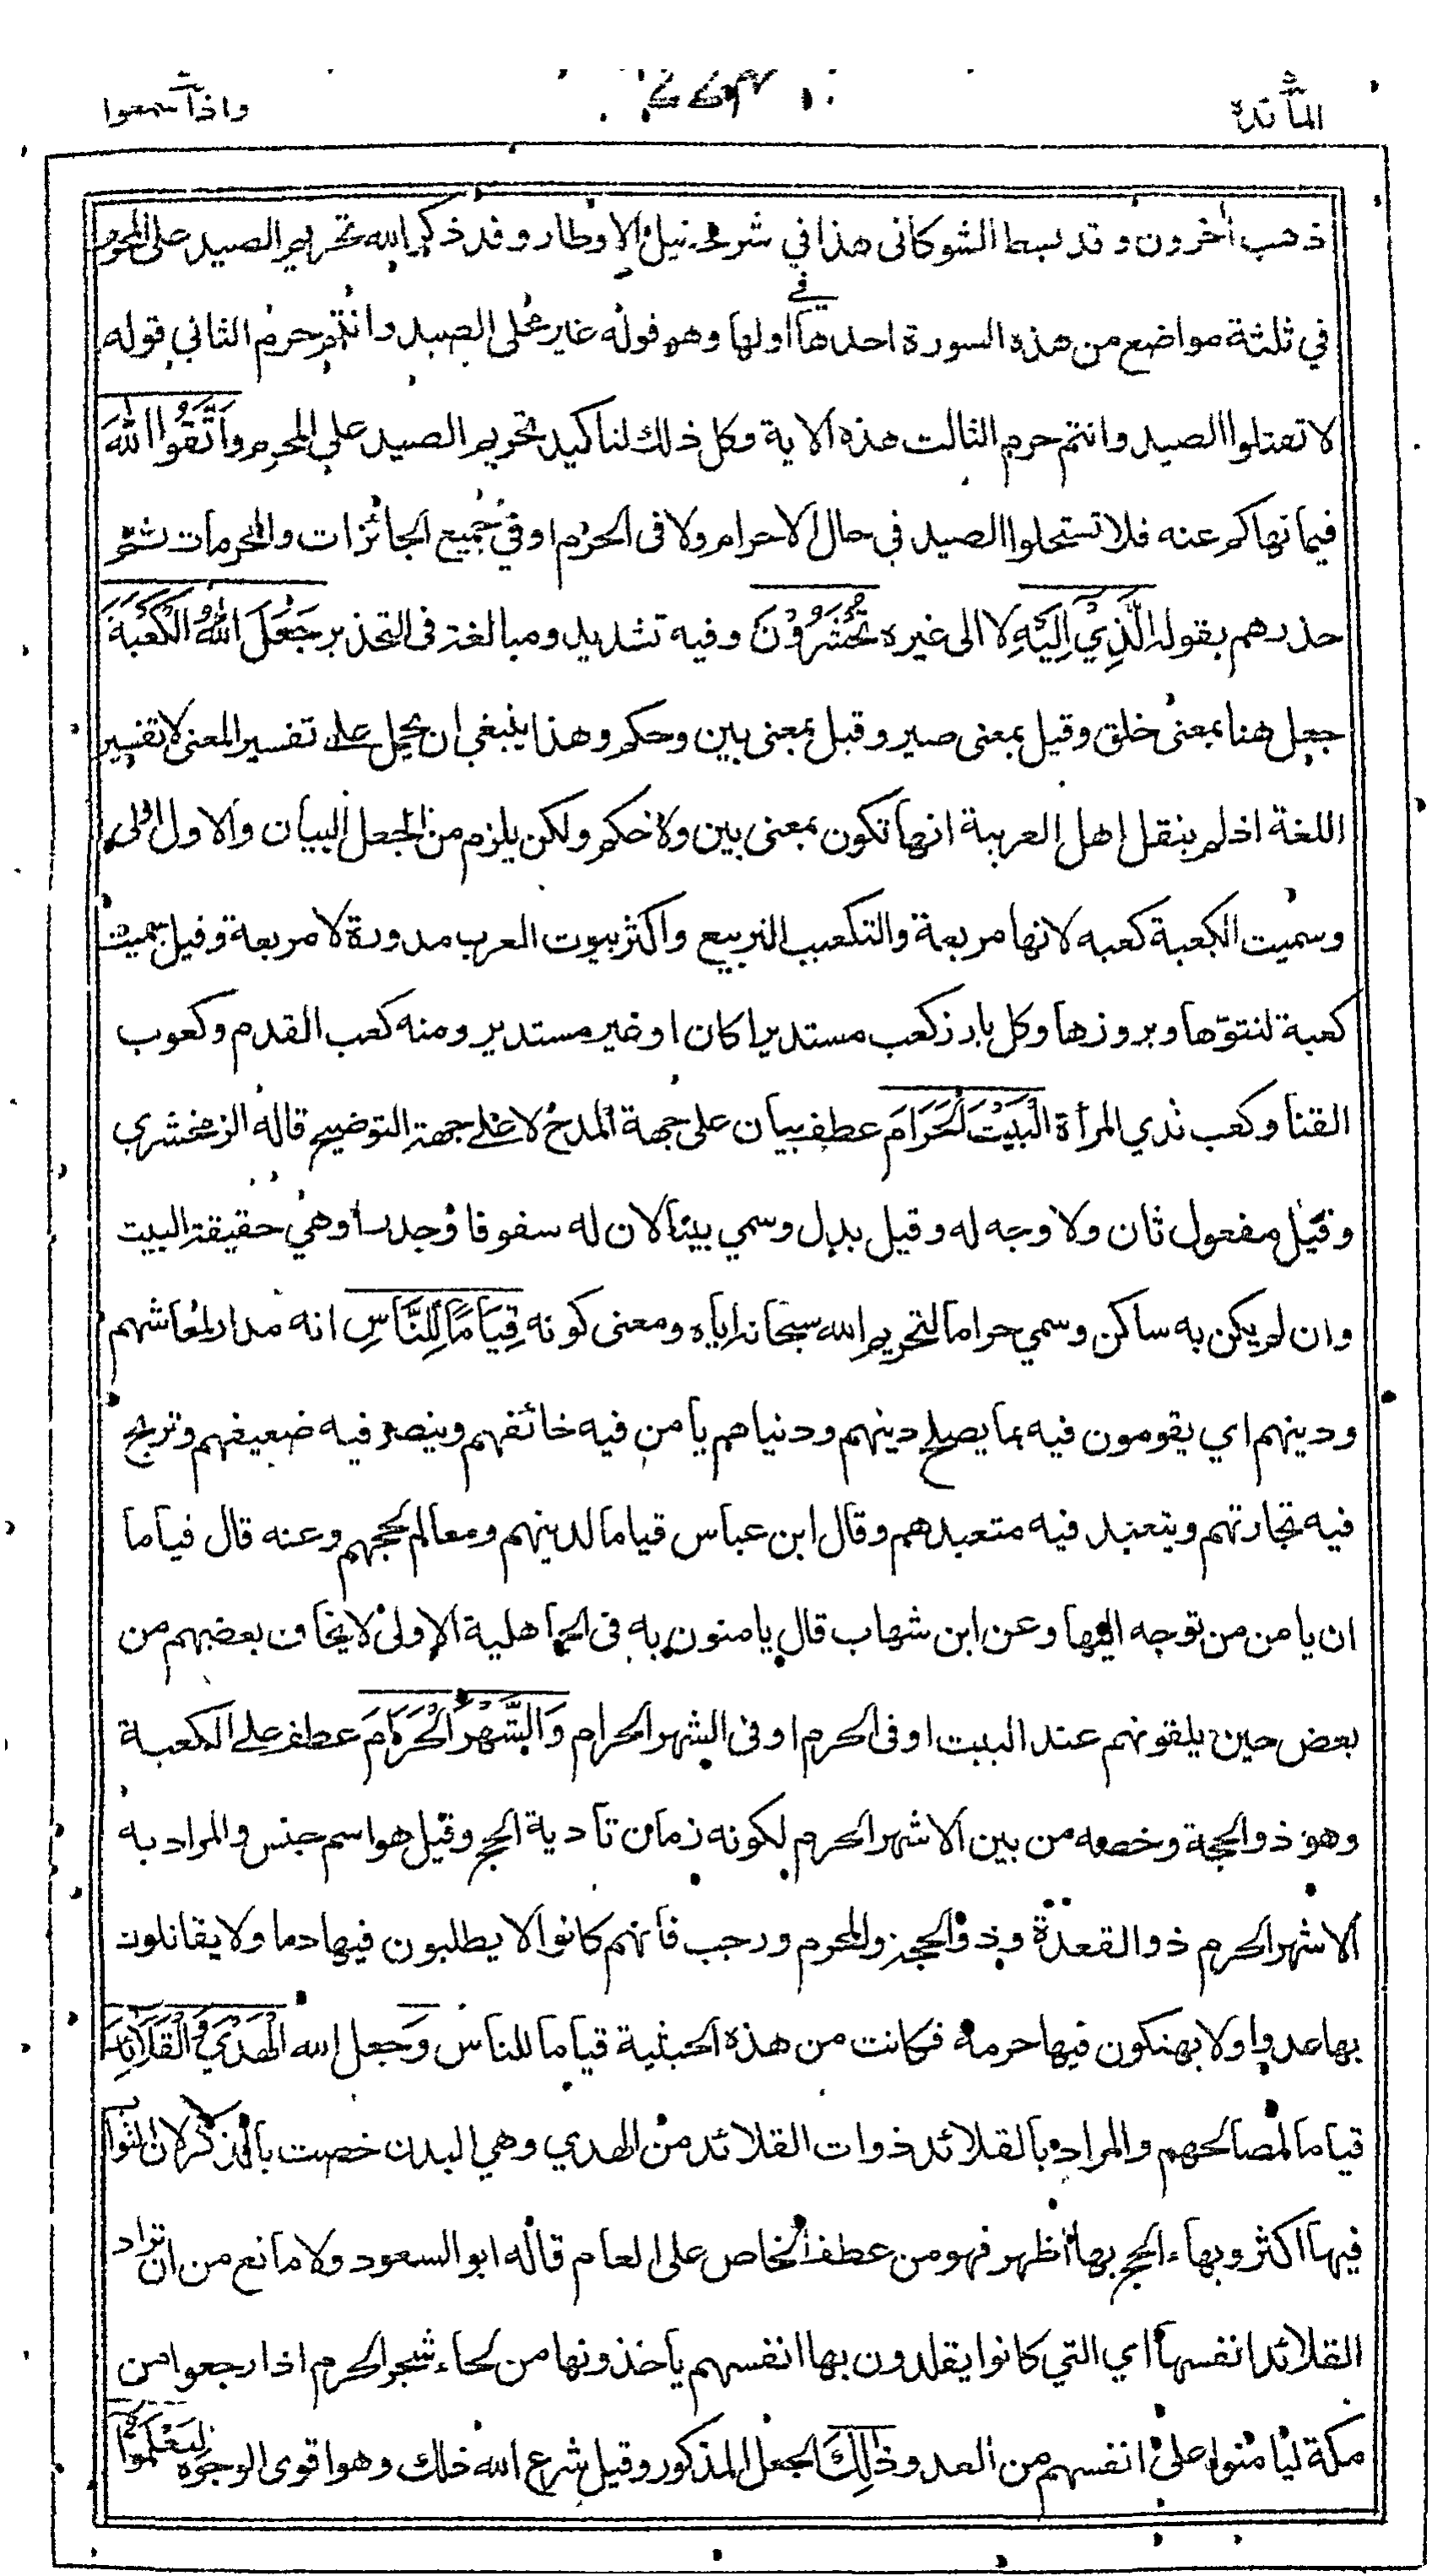 المائدة
واذا سمعوا
ذهب أخرون وقد بسط الشوكانى هذا في شرحه نيل الاوطار وقد ذكر الله تحريم الصيد على المحرم
في ثلثة مواضع من هذه السورة احدها في اولها وهو قوله غير محلى الصيد وانتم حرم الثاني قوله
لا تقتلوا الصيد وانتم حرم الثالث هذه الاية وكل ذلك لتاكيد تحريم الصيد على المحرم وَاتَّقُوا اللهَ
فيما نهاكم عنه فلا تستحلوا الصيد في حال الاحرام ولا فى الحرم او في جميع الجائزات والمحرمات ثم
حذرهم بقوله الَّذِيْ اِلَيْهِ لا الى غيره تُحْشَرُوْنَ وفيه تشديد ومبالغة فى التحذير جَعَلَ اللهُ الْكَعْبَةَ
جعل هنا بمعنى خلق وقيل بمعنى صير وقيل بمعنى بين وحكم وهذا ينبغي ان يحمل على تفسير المعنى لا تفسير
اللغة اذ لم ينقل اهل العربية انها تكون بمعنى بين ولا حكم ولكن يلزم من الجعل البيان والاول اولى
وسميت الكعبة كعبه لانها مربعة والتكعيب التربيع واكثر بيوت العرب مدورة لا مربعة وقيل سميت
كعبة لنتوّها وبروزها وكل بارز كعب مستديرا كان او غير مستدير ومنه كعب القدم وكعوب
القنا وكعب ثدي المرأة الْبَيْتَ الْحَرَامَ عطف بيان على جهة المدح لا على جهة التوضيح قاله الزمخشري
وقيل مفعول ثان ولا وجه له وقيل بدل وسمي بيتا لان له سقوفا وجدرا وهي حقيقة البيت
وان لم يكن به ساكن وسمي حراما لتحريم الله سبحانه اياه ومعنى كونه قِيَامًا لِّلنَّاسِ انه مدار لمعاشهم
ودينهم اي يقومون فيه بما يصلح دينهم ودنياهم يأمن فيه خائفهم وينصر فيه ضعيفهم وتربح
فيه تجارتهم ويتعبد فيه متعبدهم وقال ابن عباس قياما لدينهم ومعالم لحجهم وعنه قال قياما
ان يامن من توجه اليها وعن ابن شهاب قال يامنون به فى الجاهلية الاولى لا يخاف بعضهم من
بعض حين يلقونهم عند البيت او فى الحرم او فى الشهر الحرام وَالشَّهْرَ الْحَرَامَ عطف على الكعبة
وهو ذو الحجة وخصه من بين الاشهر الحرم لكونه زمان تأدية الحج وقيل هو اسم جنس والمراد به
الاشهر الحرم ذو القعدة وذو الحجة والمحرم ورجب فانهم كانوا لا يطلبون فيها دما ولا يقاتلون
بها عدوا ولا يهتكون فيها حرمة فكانت من هذه الحيثية قياما للناس وَ جعل الله الْهَدْيَ وَالْقَلَائِدَ
قياما لمصالحهم والمراد بالقلائد ذوات القلائد من الهدي وهي البدن خصت بالذكر لان الثواب
فيها اكثر وبهاء الحج بها أظهر فهو من عطف الخاص على العام قاله ابو السعود ولا مانع من ان تراد
القلائد انفسها اي التي كانوا يقلدون بها انفسهم يأخذونها من لحاء شجر الحرم اذا رجعوا من
مكة ليأمنوا على انفسهم من العدو ذٰلِكَ الجعل المذكور وقيل شرع الله ذلك وهو اقوى الوجوه لِتَعْلَمُوْا